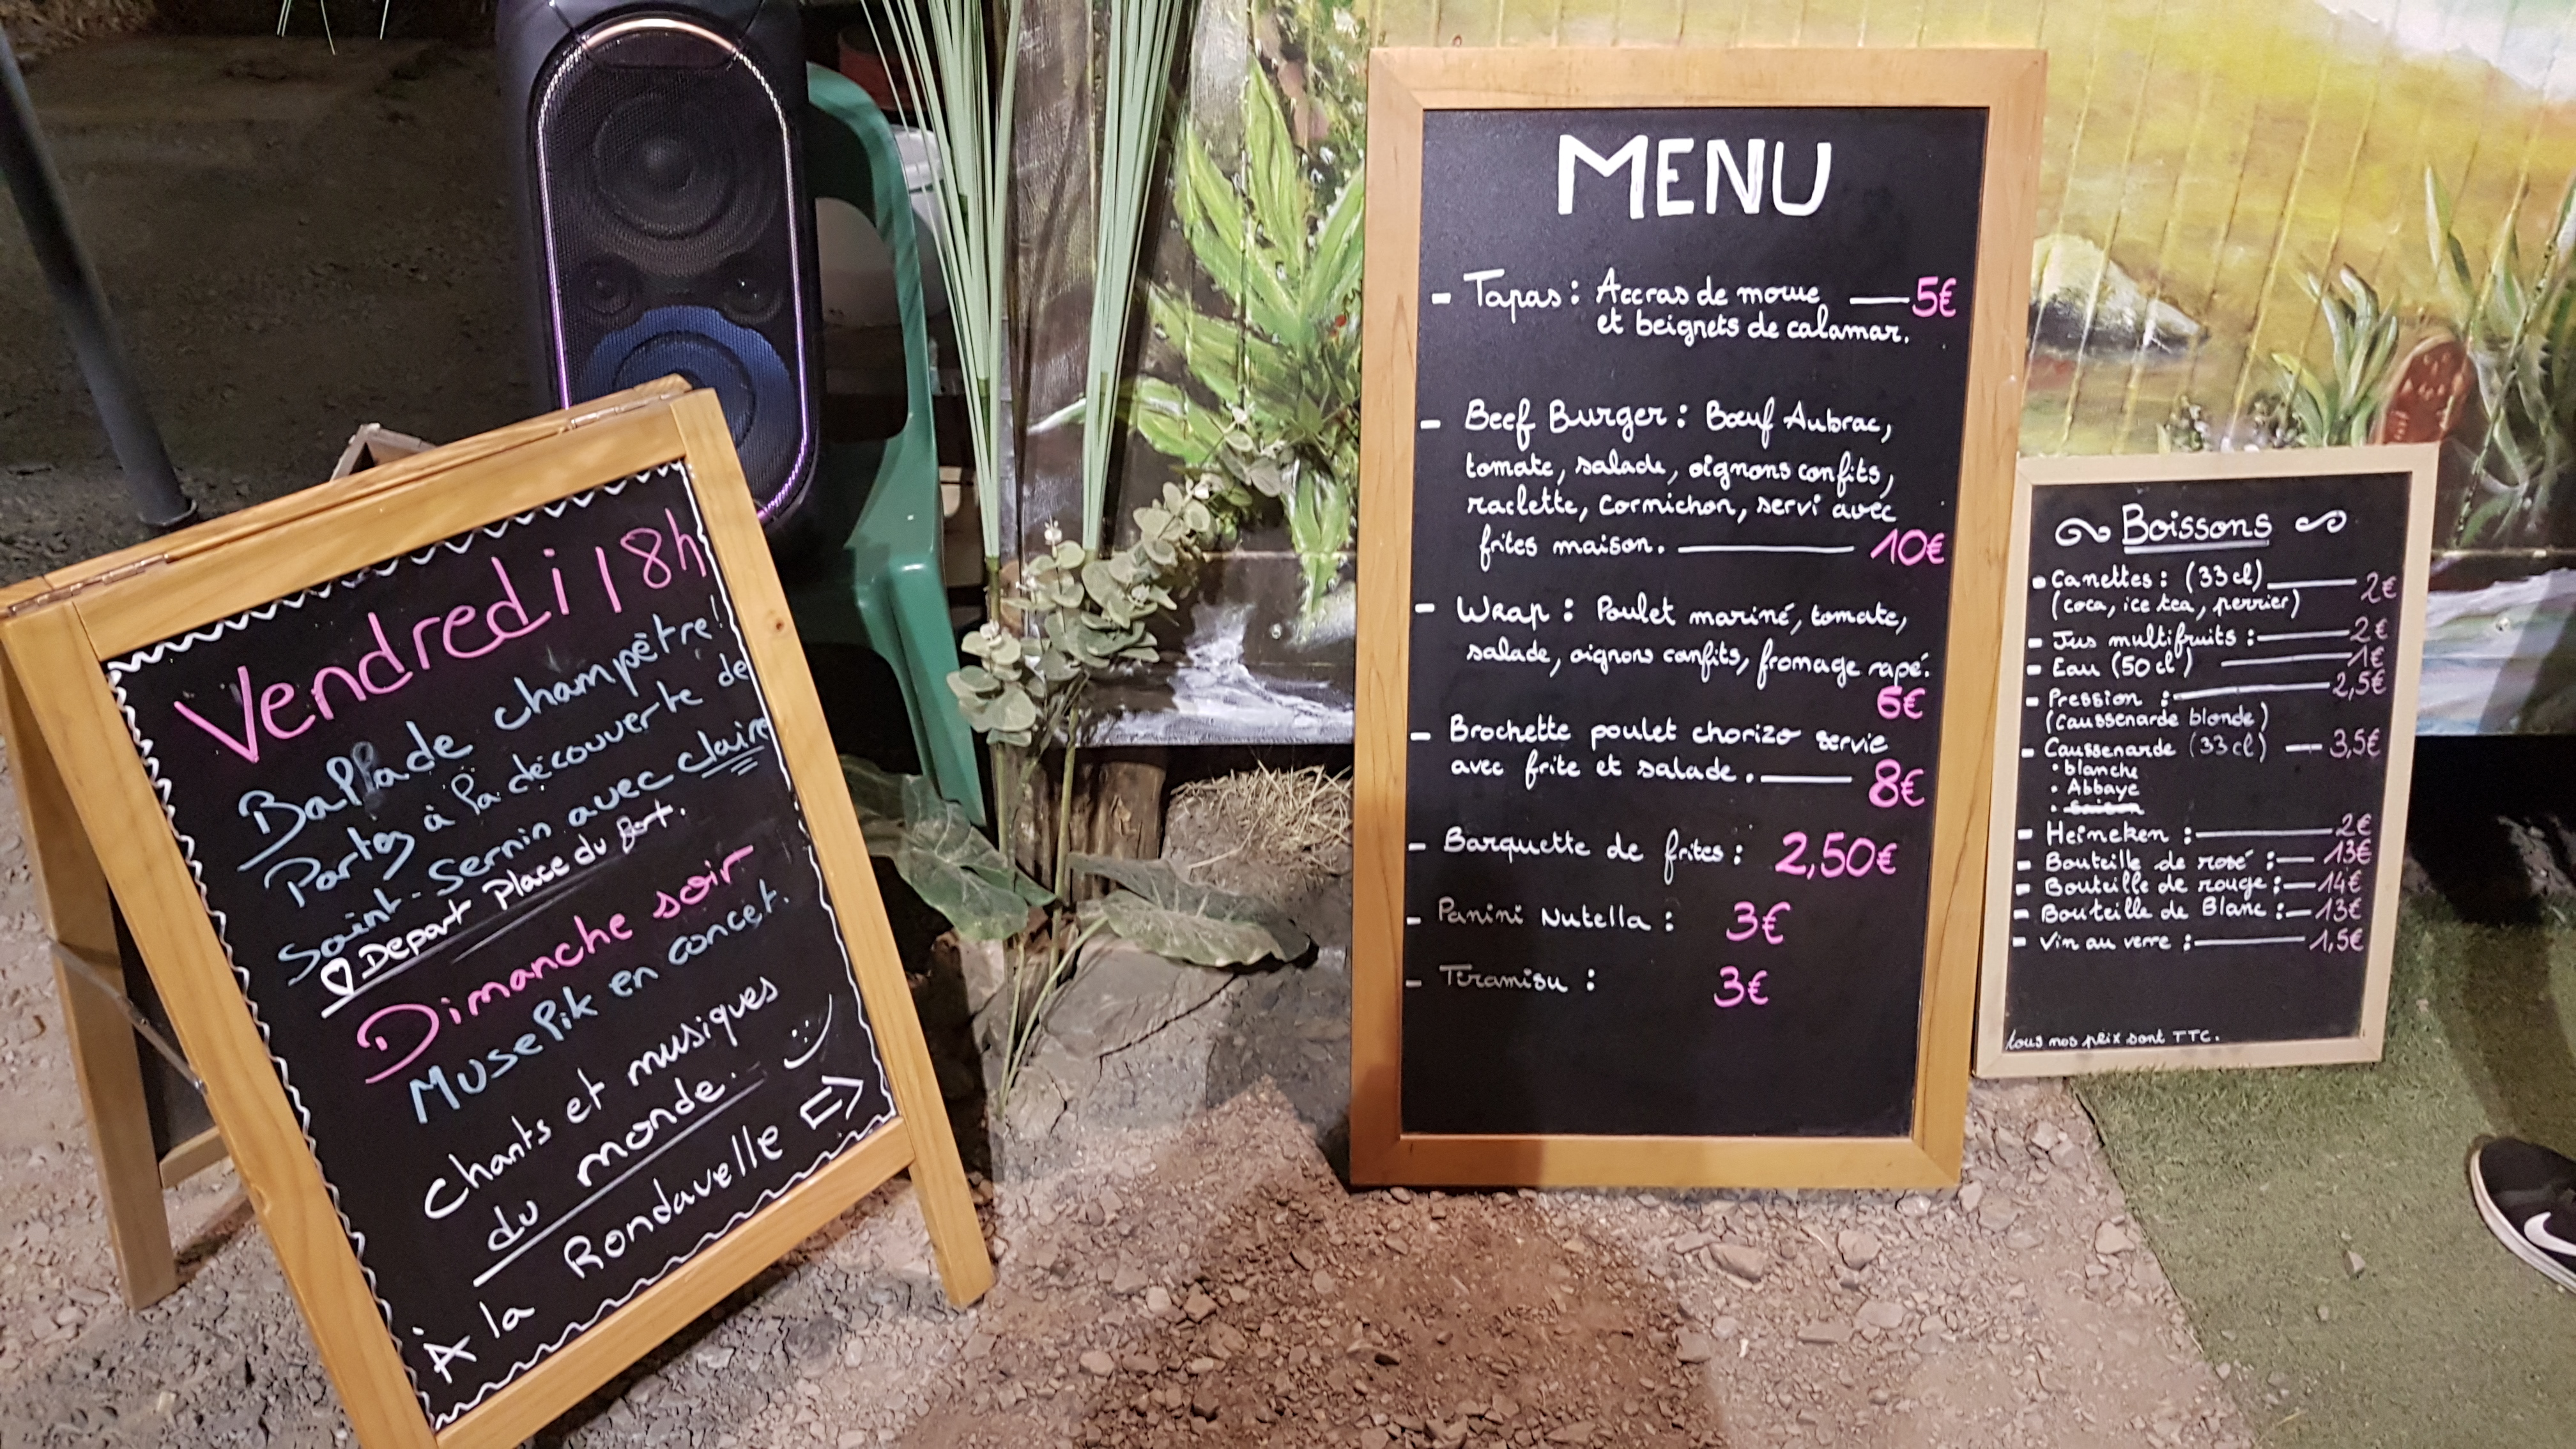 Vendredi 18h
Ballade champêtre!
Partez à la découverte de
Saint-Sernin avec Claire
Depart Place du Port.
Dimanche soir
MusePik en concet.
Chants et musiques
du monde.
À la Rondavelle
MENU
- Tapas : Accras de morue — 5€
et beignets de calamar.
- Beef Burger : Bœuf Aubrac,
tomate, salade, oignons confits,
raclette, Cormichon, servi avec
frites maison. — 10€
- Wrap : Poulet mariné, tomate,
salade, oignons confits, fromage rapé.
6€
- Brochette poulet chorizo servie
avec frite et salade. — 8€
- Barquette de frites : 2,50€
- Panini Nutella : 3€
- Tiramisu : 3€
Boissons
- Canettes : (33cl) — 2€
(coca, ice tea, perrier)
- Jus multifruits : — 2€
- Eau (50cl) — 1€
- Pression : — 2,5€
(Caussenarde blonde)
- Caussenarde (33cl) — 3,5€
• blanche
• Abbaye
- Heineken : — 2€
- Bouteille de rosé : — 13€
- Bouteille de rouge : — 14€
- Bouteille de Blanc : — 13€
- Vin au verre : — 1,5€
tous nos prix sont TTC.